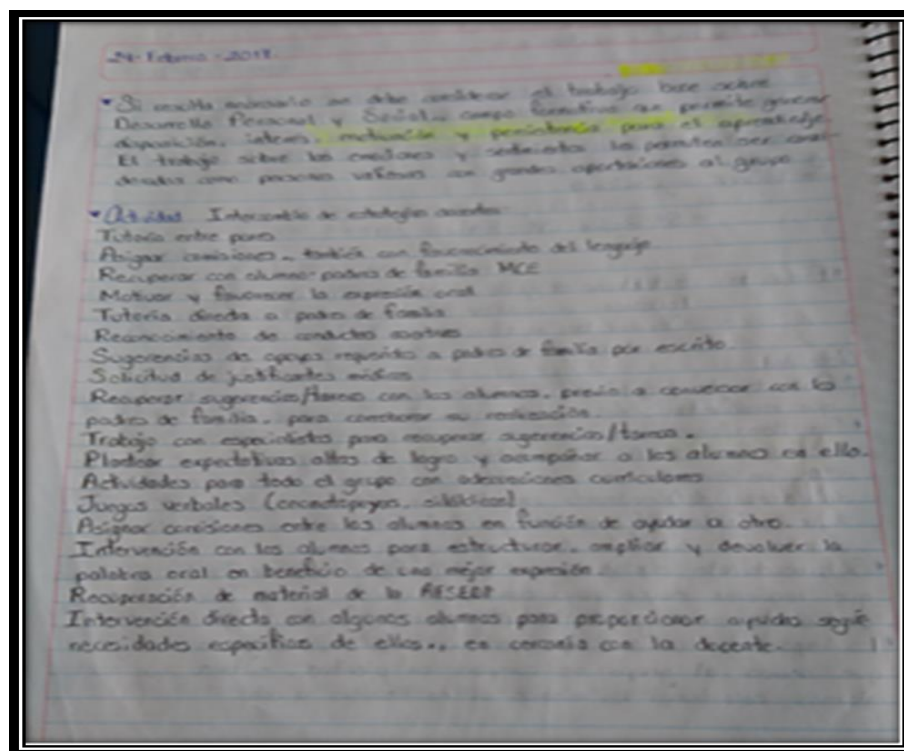 24-Febrero-2017
• Si resulta necesario se debe considerar el trabajo base sobre
Desarrollo Personal y Social, campo formativo que permite generar
disposición, interés, motivación y persistencia para el aprendizaje
El trabajo sobre las emociones y sentimientos les permiten ser consi-
deradas como personas valiosas con grandes aportaciones al grupo
• Actividad Intercambio de estrategias docentes
Tutoría entre pares
Asignar comisiones, también con favorecimiento del lenguaje
Recuperar con alumno-padres de familia MCE
Motivar y favorecer la expresión oral
Tutoría directa a padres de familia
Reconocimiento de conductas
Sugerencias de apoyos requeridos a padres de familia por escrito
Solicitud de justificantes médicos
Recuperar sugerencias/tareas con los alumnos, previo a conversar con los
padres de familia, para corroborar su realización
Trabajo con especialistas para recuperar sugerencias/tareas.
Plantear expectativas altas de logro y acompañar a los alumnos en ello.
Actividades para todo el grupo con adecuaciones curriculares
Juegos verbales (onomatopeyas, silábicos)
Asignar comisiones entre los alumnos en función de ayudar a otro.
Intervención con los alumnos para estructurar, ampliar y devolver la
palabra oral en beneficio de una mejor expresión.
Recuperación de material de la
Intervención directa con algunos alumnos para proporcionar ayudas según
necesidades específicas de ellos, en cercanía con la docente.